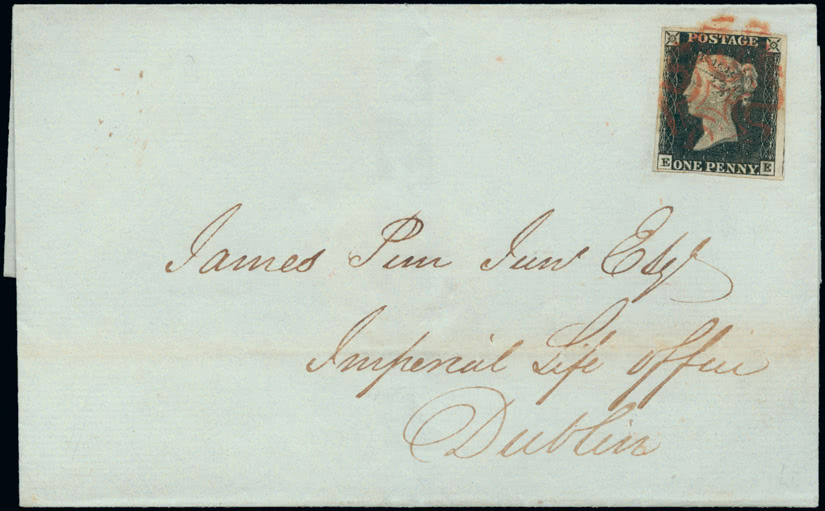 POSTAGE
E ONE PENNY E
James Pim Junr Esqr
Imperial Life Office
Dublin